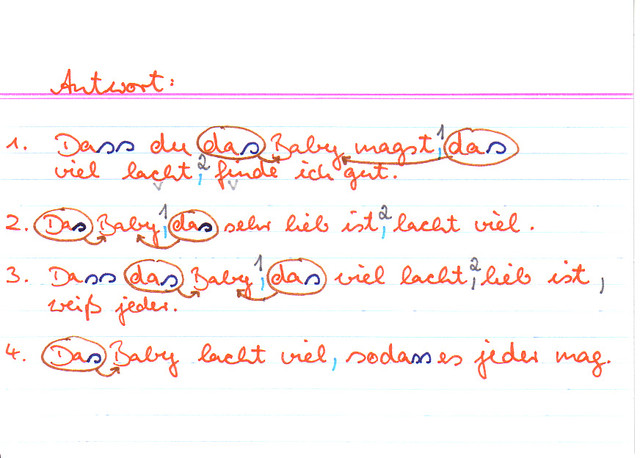 Antwort:
1. Dass du das Baby magst,¹ das
viel lacht,² finde ich gut.
V V
2. Das Baby,¹ das sehr lieb ist,² lacht viel.
3. Dass das Baby,¹ das viel lacht,² lieb ist,
weiß jeder.
4. Das Baby lacht viel, sodass es jeder mag.